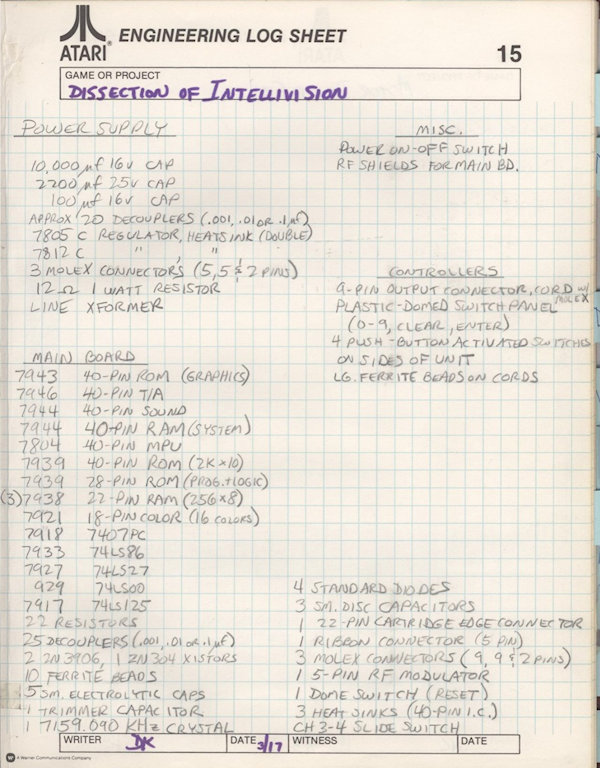 ATARI® ENGINEERING LOG SHEET
15
GAME OR PROJECT
DISSECTION OF INTELLIVISION
POWER SUPPLY
10,000 µf 16V CAP
2200 µf 25V CAP
100 µf 16V CAP
APPROX 20 DECOUPLERS (.001, .01 OR .1 µf)
7805 C REGULATOR, HEATSINK (DOUBLE)
7812 C " , "
3 MOLEX CONNECTORS (5, 5 & 2 PINS)
12 Ω 1 WATT RESISTOR
LINE XFORMER
MISC.
POWER ON-OFF SWITCH
RF SHIELDS FOR MAIN BD.
CONTROLLERS
9-PIN OUTPUT CONNECTOR, CORD W/ MOLEX
PLASTIC-DOMED SWITCH PANEL
(0-9, CLEAR, ENTER)
4 PUSH-BUTTON ACTIVATED SWITCHES
ON SIDES OF UNIT
LG. FERRITE BEADS ON CORDS
MAIN BOARD
7943 40-PIN ROM (GRAPHICS)
7946 40-PIN T/A
7944 40-PIN SOUND
7944 40-PIN RAM (SYSTEM)
7804 40-PIN MPU
7939 40-PIN ROM (2K x 10)
7939 28-PIN ROM (PROG. + LOGIC)
(3) 7938 22-PIN RAM (256 x 8)
7921 18-PIN COLOR (16 COLORS)
7918 7407PC
7933 74LS86
7927 74LS27
929 74LS00
7917 74LS125
22 RESISTORS
25 DECOUPLERS (.001, .01 OR .1 µf)
2 2N3906, 1 2N304 XISTORS
10 FERRITE BEADS
5 SM. ELECTROLYTIC CAPS
1 TRIMMER CAPACITOR
1 7159.090 KHz CRYSTAL
4 STANDARD DIODES
3 SM. DISC CAPACITORS
1 22-PIN CARTRIDGE EDGE CONNECTOR
1 RIBBON CONNECTOR (5 PIN)
3 MOLEX CONNECTORS (9, 9 & 2 PINS)
1 5-PIN RF MODULATOR
1 DOME SWITCH (RESET)
3 HEAT SINKS (40-PIN I.C.)
CH 3-4 SLIDE SWITCH
WRITER DK DATE 3/17 WITNESS DATE
A Warner Communications Company